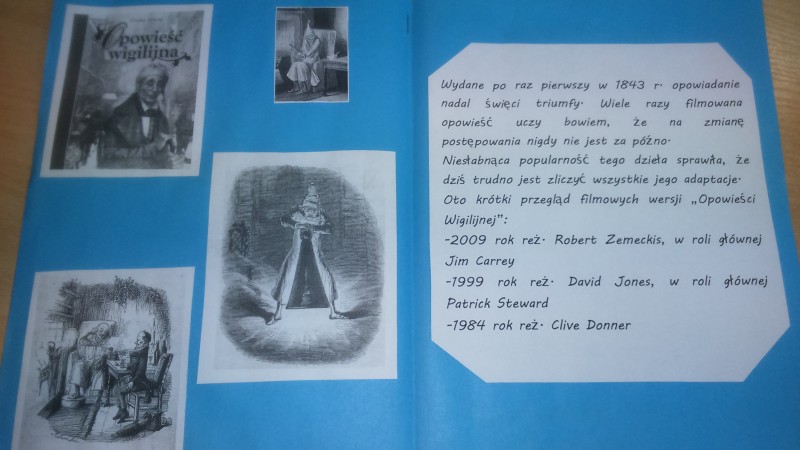 Opowieść
wigilijna
Wydane po raz pierwszy w 1843 r. opowiadanie
nadal święci triumfy. Wiele razy filmowana
opowieść uczy bowiem, że na zmianę
postępowania nigdy nie jest za późno.
Niesłabnąca popularność tego dzieła sprawiła, że
dziś trudno jest zliczyć wszystkie jego adaptacje.
Oto krótki przegląd filmowych wersji „Opowieści
Wigilijnej”:
-2009 rok reż. Robert Zemeckis, w roli głównej
Jim Carrey
-1999 rok reż. David Jones, w roli głównej
Patrick Steward
-1984 rok reż. Clive Donner